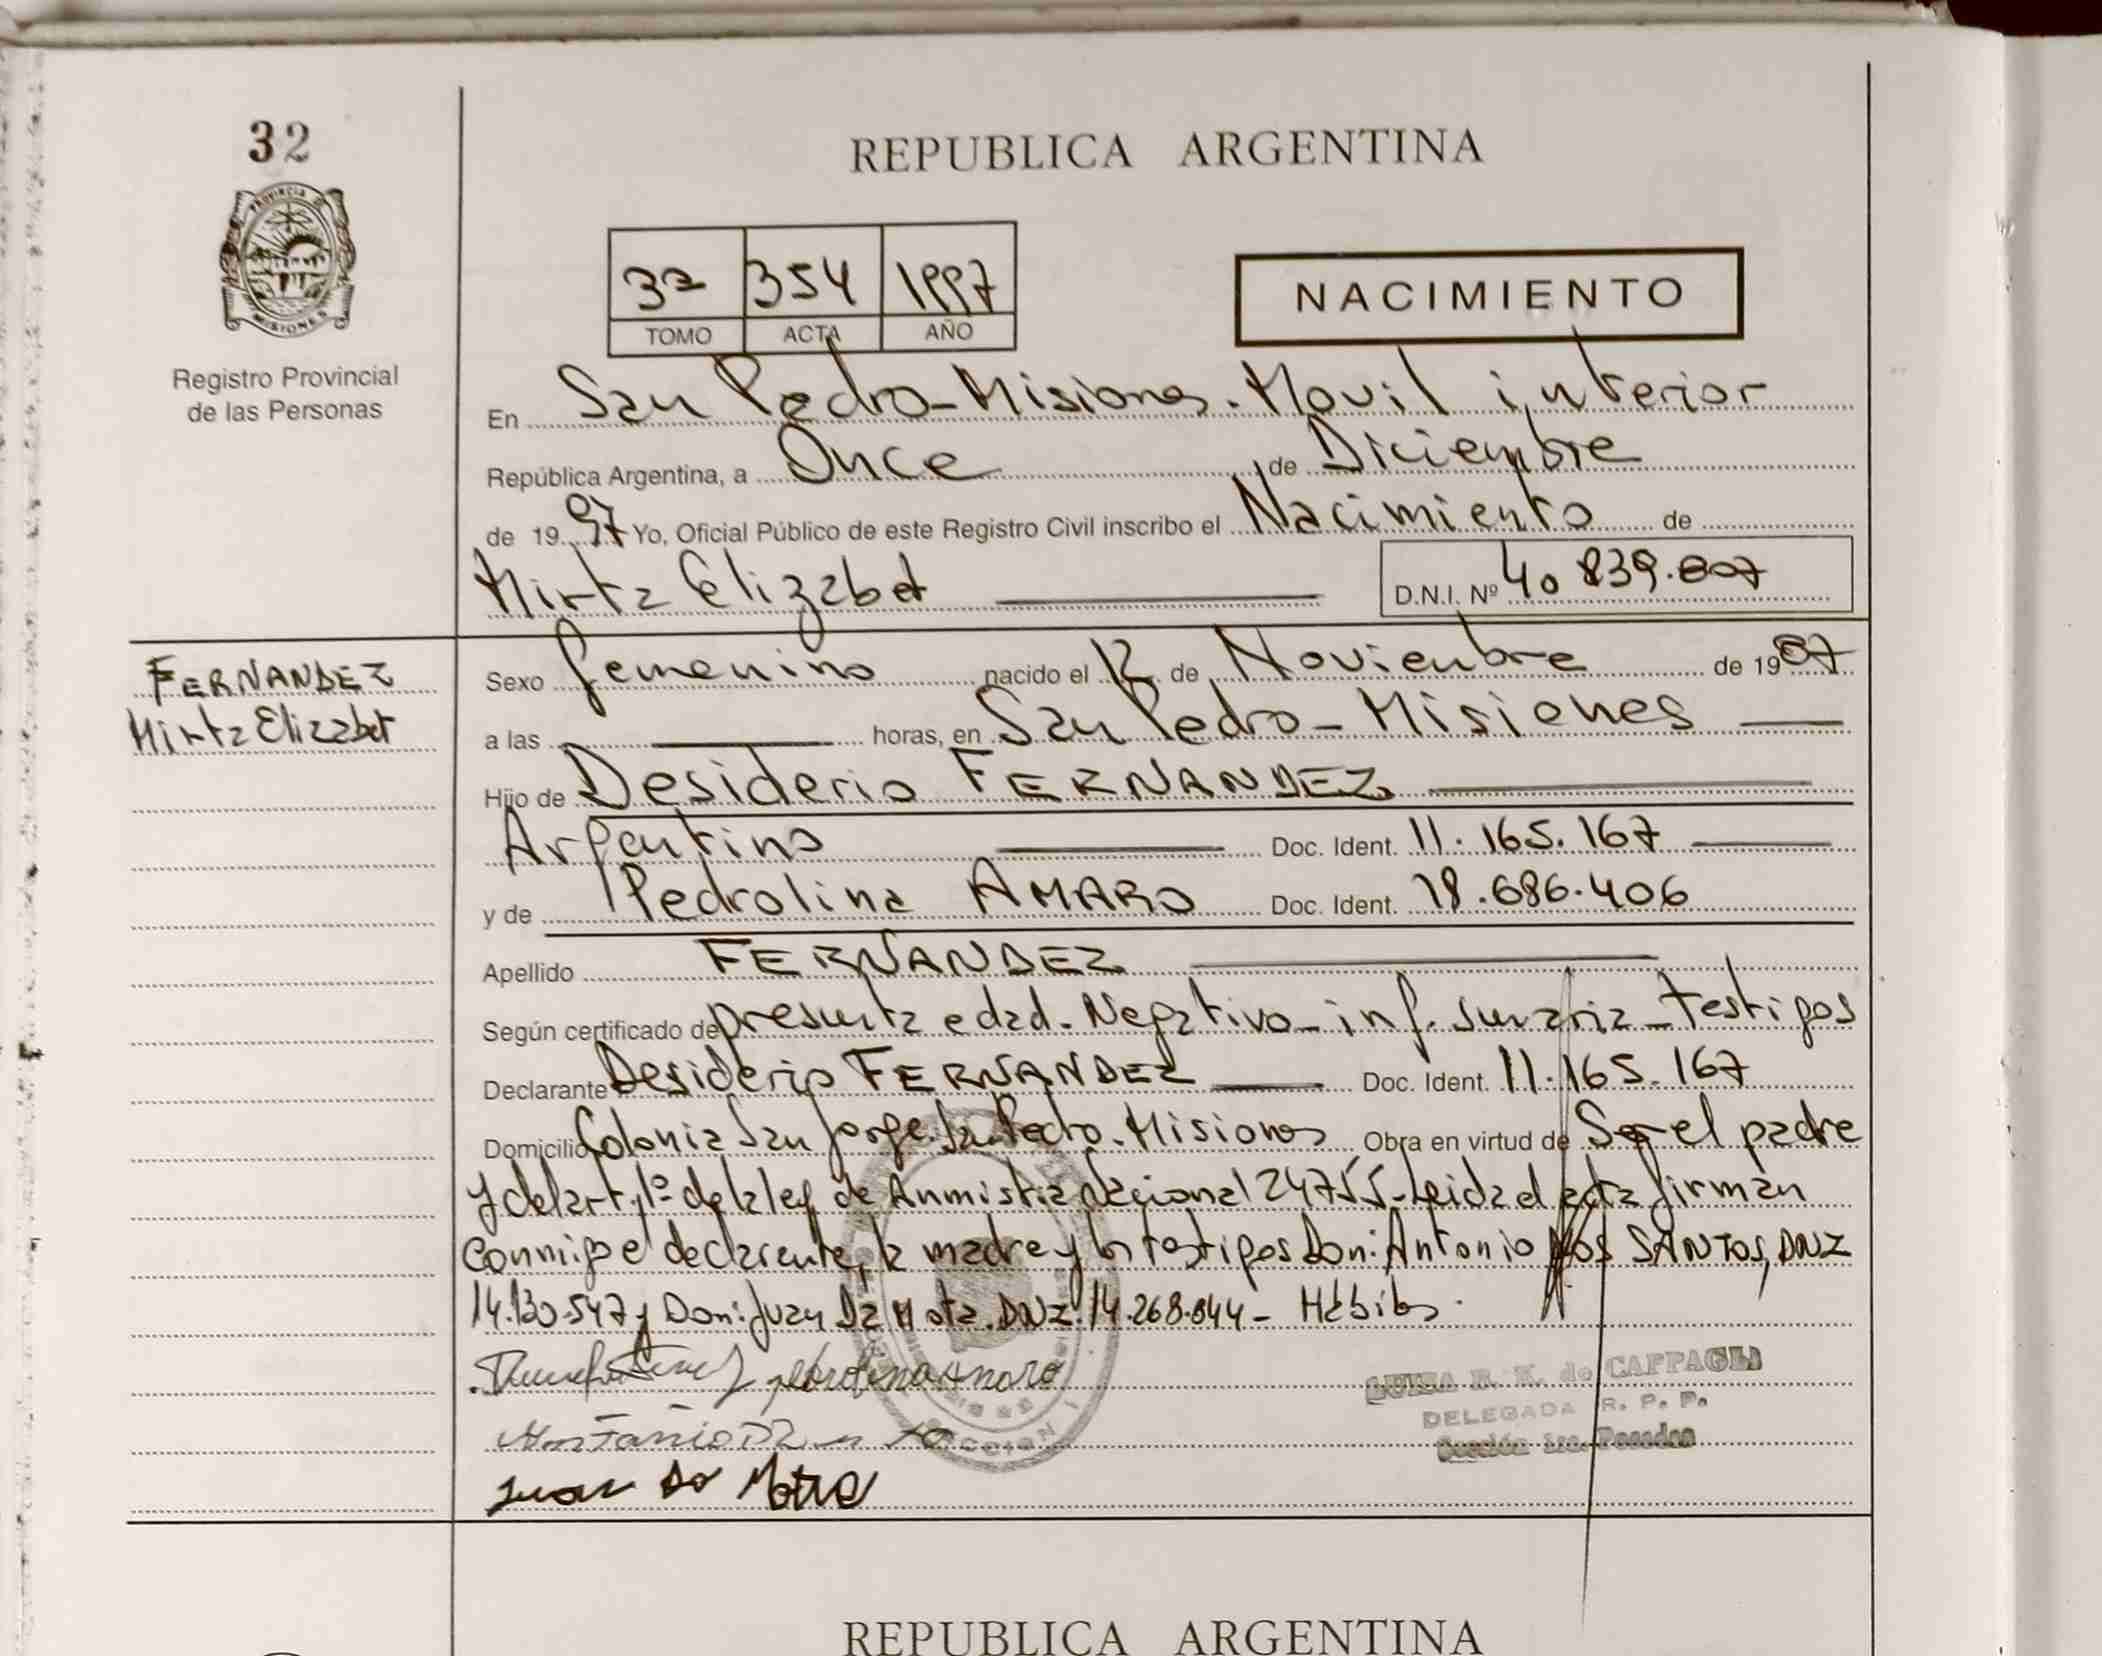 32
REPUBLICA ARGENTINA
32 354 1997
TOMO ACTA AÑO
NACIMIENTO
PROVINCIA DE MISIONES
Registro Provincial
de las Personas
En San Pedro - Misiones. Movil interior
República Argentina, a Once de Diciembre
de 19 97 Yo, Oficial Público de este Registro Civil inscribo el Nacimiento de
Mirta Elizabet D.N.I. Nº 40 839.807
FERNANDEZ
Mirta Elizabet
Sexo femenino nacido el 12 de Noviembre de 19 87
a las horas, en San Pedro - Misiones
Hijo de Desiderio FERNANDEZ
Argentino Doc. Ident. 11.165.167
y de Pedrolina AMARO Doc. Ident. 18.686.406
Apellido FERNANDEZ
Según certificado de presunta edad. Negativo - inf. sumaria - testigos
Declarante Desiderio FERNANDEZ Doc. Ident. 11.165.167
Domicilio Colonia San Jorge. San Pedro. Misiones Obra en virtud de Ser el padre
y del art. 1º de la ley de Anmistia Nacional 24755 - Leida el acta firman
conmigo el declarante, la madre y los testigos Don: Antonio DOS SANTOS, DNI
14.130.547 y Don: Juan Da Mota. DNI. 14.268.844 - Hábiles.
pedrolina amaro
Juan Da Mota
LUISA R. K. de CAFFAGLI
DELEGADA R. P. P.
Sección 1ra. Posadas
REPUBLICA ARGENTINA